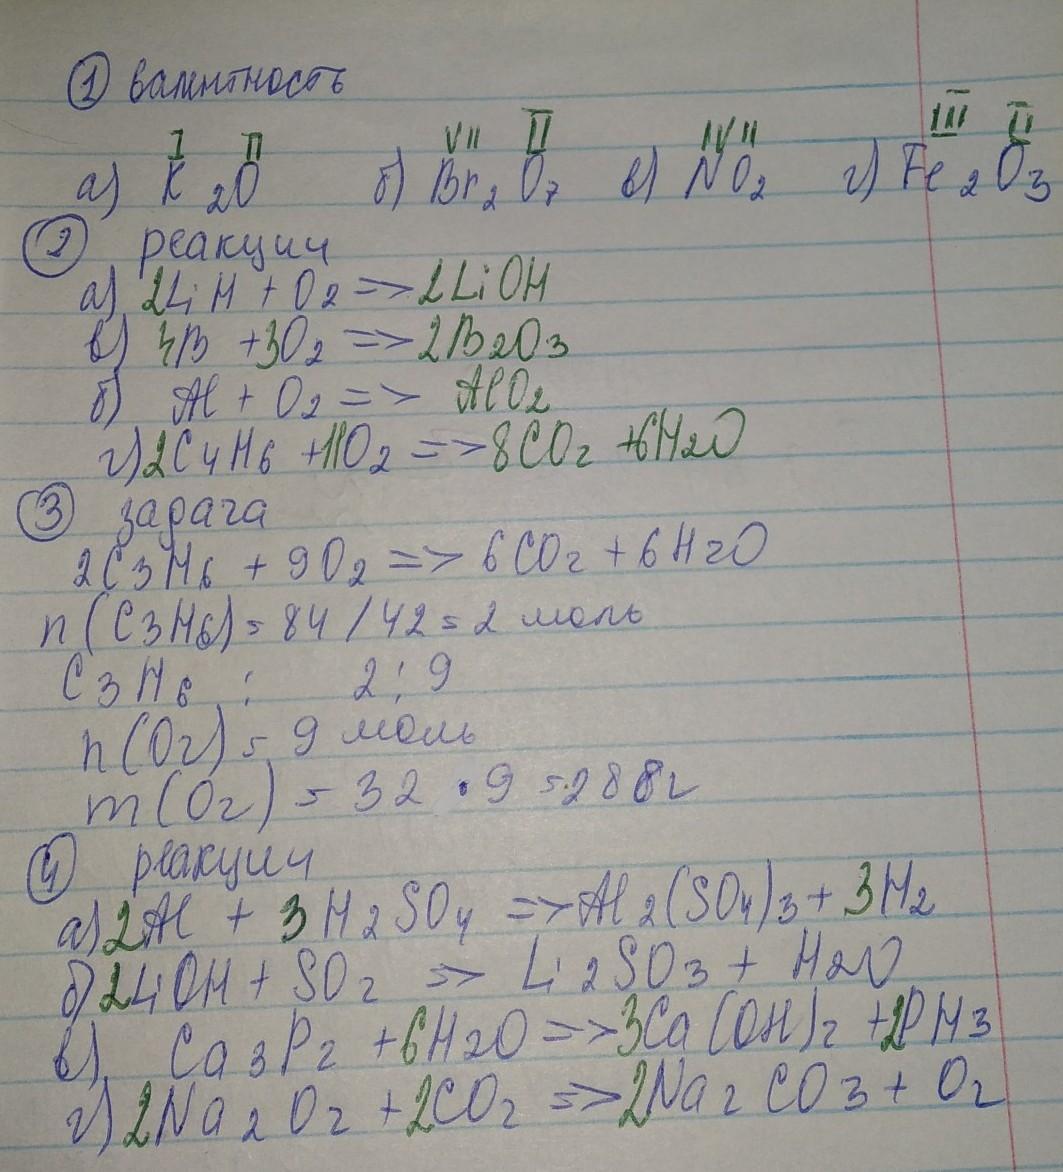 ① валентность
I II VII II IV II III II
а) K2O б) Br2O7 в) NO2 г) Fe2O3
② реакции
а) 2LiH + O2 => 2LiOH
в) 4B + 3O2 => 2B2O3
б) Al + O2 => AlO2
г) 2C4H6 + 11O2 => 8CO2 + 6H2O
③ задача
2C3H6 + 9O2 => 6CO2 + 6H2O
n(C3H6) = 84 / 42 = 2 моль
C3H6 : 2 : 9
n(O2) = 9 моль
m(O2) = 32 · 9 = 288г
④ реакции
а) 2Al + 3H2SO4 => Al2(SO4)3 + 3H2
б) 2LiOH + SO2 => Li2SO3 + H2O
в) Ca3P2 + 6H2O => 3Ca(OH)2 + 2PH3
г) 2Na2O2 + 2CO2 => 2Na2CO3 + O2